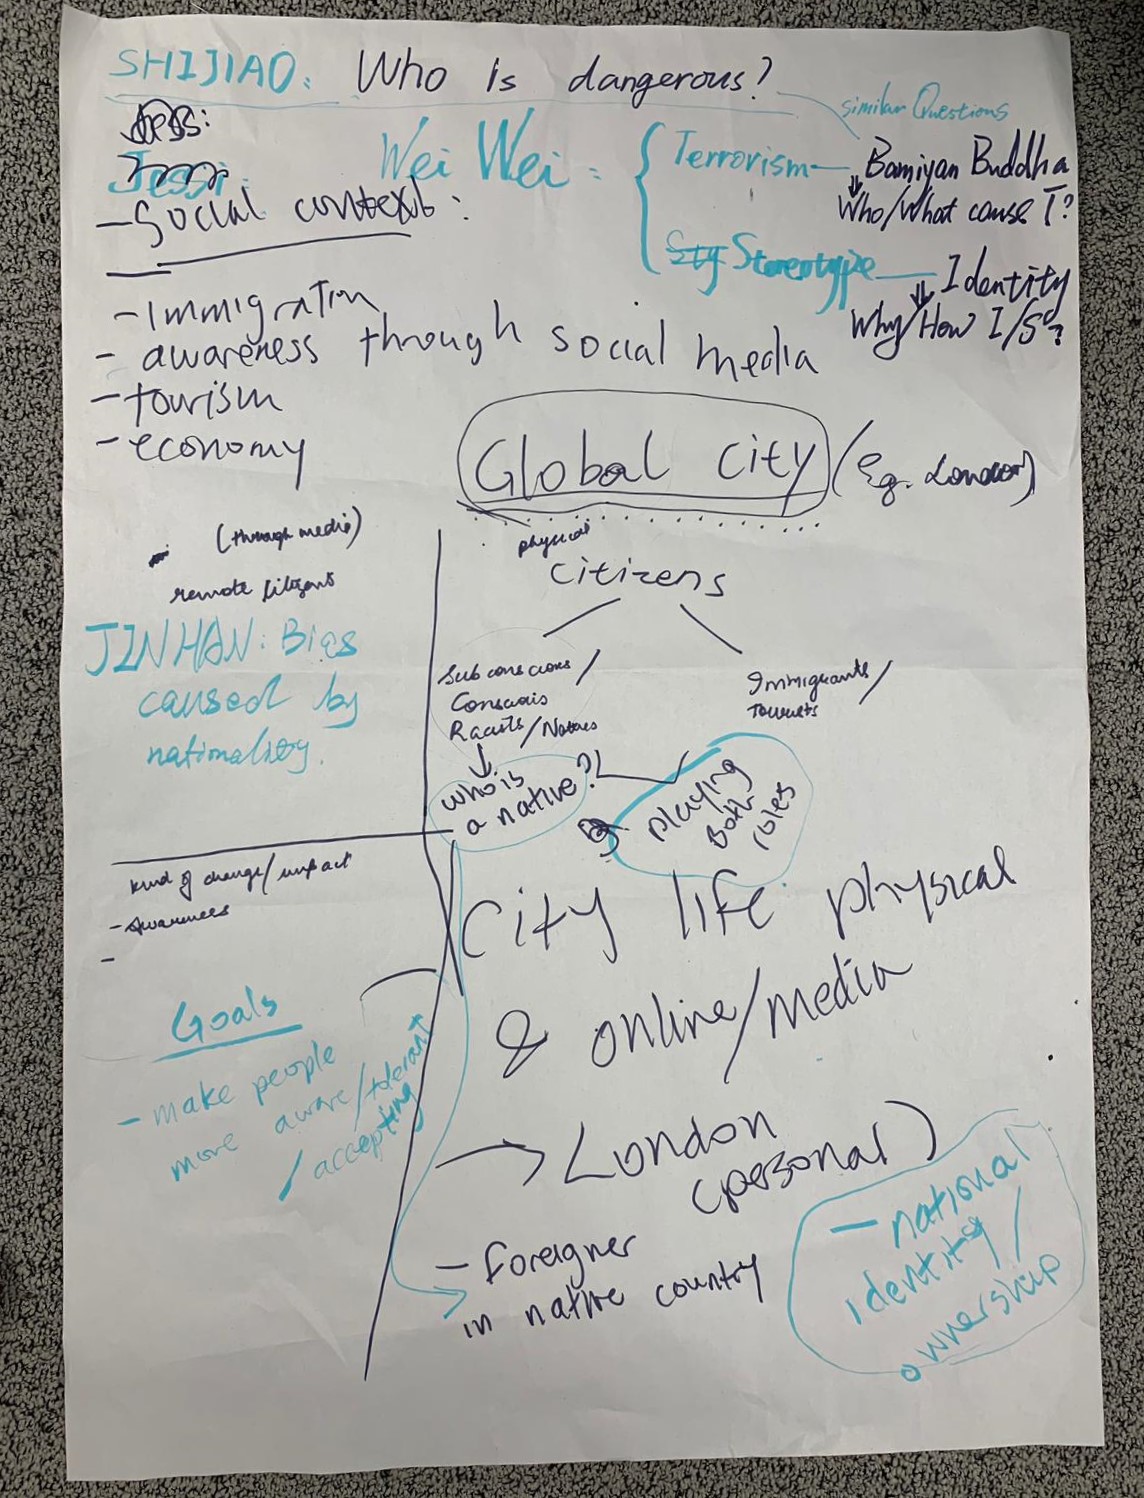 SHIJIAO: Who is dangerous?
similar Questions
Jessi:
Wei Wei:
Terrorism — Bamiyan Buddha
Who/What cause T?
Stereotype — Identity
Why/How I/S?
- Social context:
- Immigration
- awareness through social media
- tourism
- economy
Global city (Eg. London)
(through media)
remote citizens
physical
citizens
JINHAN: Bias
caused by
nationality.
Subconscious/
Conscious
Racists/Natives
Immigrants/
Tourists
who is
a native?!
playing
Both
roles
kind of change/impact
- Awareness
-
City life physical
& online/media
Goals
- make people
more aware/tolerant
/accepting
→ London
(personal)
- foreigner
in native country
- national
identity/
ownership